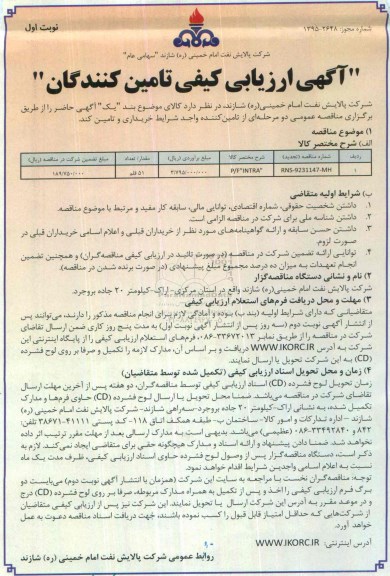 شماره مجوز: ۱۳۹۵-۲۶۴۸
نوبت اول
شرکت پالایش نفت امام خمینی (ره) شازند "سهامی عام"
"آگهی ارزیابی کیفی تامین کنندگان"
شرکت پالایش نفت امام خمینی(ره) شازند، در نظر دارد کالای موضوع بند "یک" آگهی حاضر را از طریق
برگزاری مناقصه عمومی دو مرحله‌ای از تامین‌کننده واجد شرایط خریداری و تامین کند.
۱) موضوع مناقصه
الف) شرح مختصر کالا
ردیف شماره مناقصه (تجدید) شرح مختصر کالا مبلغ برآوردی (ریال) مقدار/ تعداد مبلغ تضمین شرکت در مناقصه (ریال)
۱ RNS-9231147-MH P/F"INTRA" ۳/۷۹۵/۰۰۰/۰۰۰ ۵۱ قلم ۱۸۹/۷۵۰/۰۰۰
ب) شرایط اولیه متقاضی
۱. داشتن شخصیت حقوقی، شماره اقتصادی، توانایی مالی، سابقه کار مفید و مرتبط با موضوع مناقصه.
۲. داشتن شناسه ملی برای شرکت در مناقصه الزامی است.
۳. داشتن حسن سابقه و ارائه گواهینامه‌های مورد نظر از خریداران قبلی و اعلام اسامی خریداران قبلی در
صورت لزوم.
۴. توانایی ارائه تضمین شرکت در مناقصه (در صورت تائید در ارزیابی کیفی مناقصه‌گران) و همچنین تضمین
انجام تعهدات به میزان ده درصد مجموع مبلغ پیشنهادی (در صورت برنده شدن در مناقصه).
۲) نام و نشانی دستگاه مناقصه‌گزار
شرکت پالایش نفت امام خمینی (ره) شازند واقع در استان مرکزی-اراک-کیلومتر ۲۰ جاده بروجرد.
۳) مهلت و محل دریافت فرم‌های استعلام ارزیابی کیفی
متقاضیانی که دارای شرایط اولیه (بند ب) بوده و آمادگی لازم برای انجام مناقصه مذکور را دارند، می‌توانند پس
از انتشار آگهی نوبت دوم (سه روز پس از انتشار آگهی نوبت اول) به مدت پنج روز کاری ضمن ارسال تقاضای
شرکت در مناقصه از طریق نمابر ۰۸۶-۳۳۶۷۲۰۱۳، فرم‌های استعلام ارزیابی کیفی را از پایگاه اینترنتی این
شرکت به آدرس WWW.IKORC.IR دریافت و بر اساس آن، مدارک لازمه را تکمیل و صرفا بر روی لوح فشرده
(CD) به این شرکت تحویل یا ارسال نمایند.
۴) زمان و محل تحویل اسناد ارزیابی کیفی (تکمیل شده توسط متقاضیان)
زمان تحویل لوح فشرده (CD) اسناد ارزیابی کیفی توسط مناقصه‌گران، دو هفته پس از آخرین مهلت ارسال
تقاضای شرکت در مناقصه می‌باشد. ضمنا محل تحویل یا ارسال لوح فشرده (CD) حاوی فرم‌ها و مدارک
تکمیل شده، به نشانی اراک-کیلومتر ۲۰ جاده بروجرد-سه‌راهی شازند- شرکت پالایش نفت امام خمینی (ره)
شازند - اداره تدارکات و امور کالا- ساختمان ب- طبقه همکف اتاق ۱۱۸- کد پستی ۴۱۱۱۱-۳۸۶۷۱ تلفن:
نخواهد شد. ضمنا دادن پیشنهاد و ارائه اسناد و مدارک هیچگونه حقی برای متقاضی ایجاد نمی‌کند. لازم به
ذکر است، دستگاه مناقصه‌گزار پس از وصول لوح فشرده حاوی اسناد ارزیابی کیفی، ظرف مدت یک ماه
نسبت به اعلام اسامی واجدین شرایط اقدام خواهد نمود.
توجه: مناقصه‌گران نخست با مراجعه به سایت این شرکت (همزمان با انتشار آگهی نوبت دوم) می‌بایست دو
برگ فرم ارزیابی کیفی را اخذ و پس از تکمیل به همراه مدارک مربوطه، صرفا بر روی لوح فشرده (CD) درج
و در موعد مقرر به آدرس این شرکت ارسال یا تحویل نمایند. این شرکت نیز پس از ارزیابی کیفی متقاضیان
از شرکت‌هایی که حداقل امتیاز قابل قبول را کسب نموده باشند، جهت دریافت اسناد مناقصه دعوت به عمل
خواهد آورد.
آدرس اینترنتی: WWW.IKORC.IR
روابط عمومی شرکت پالایش نفت امام خمینی (ره) شازند